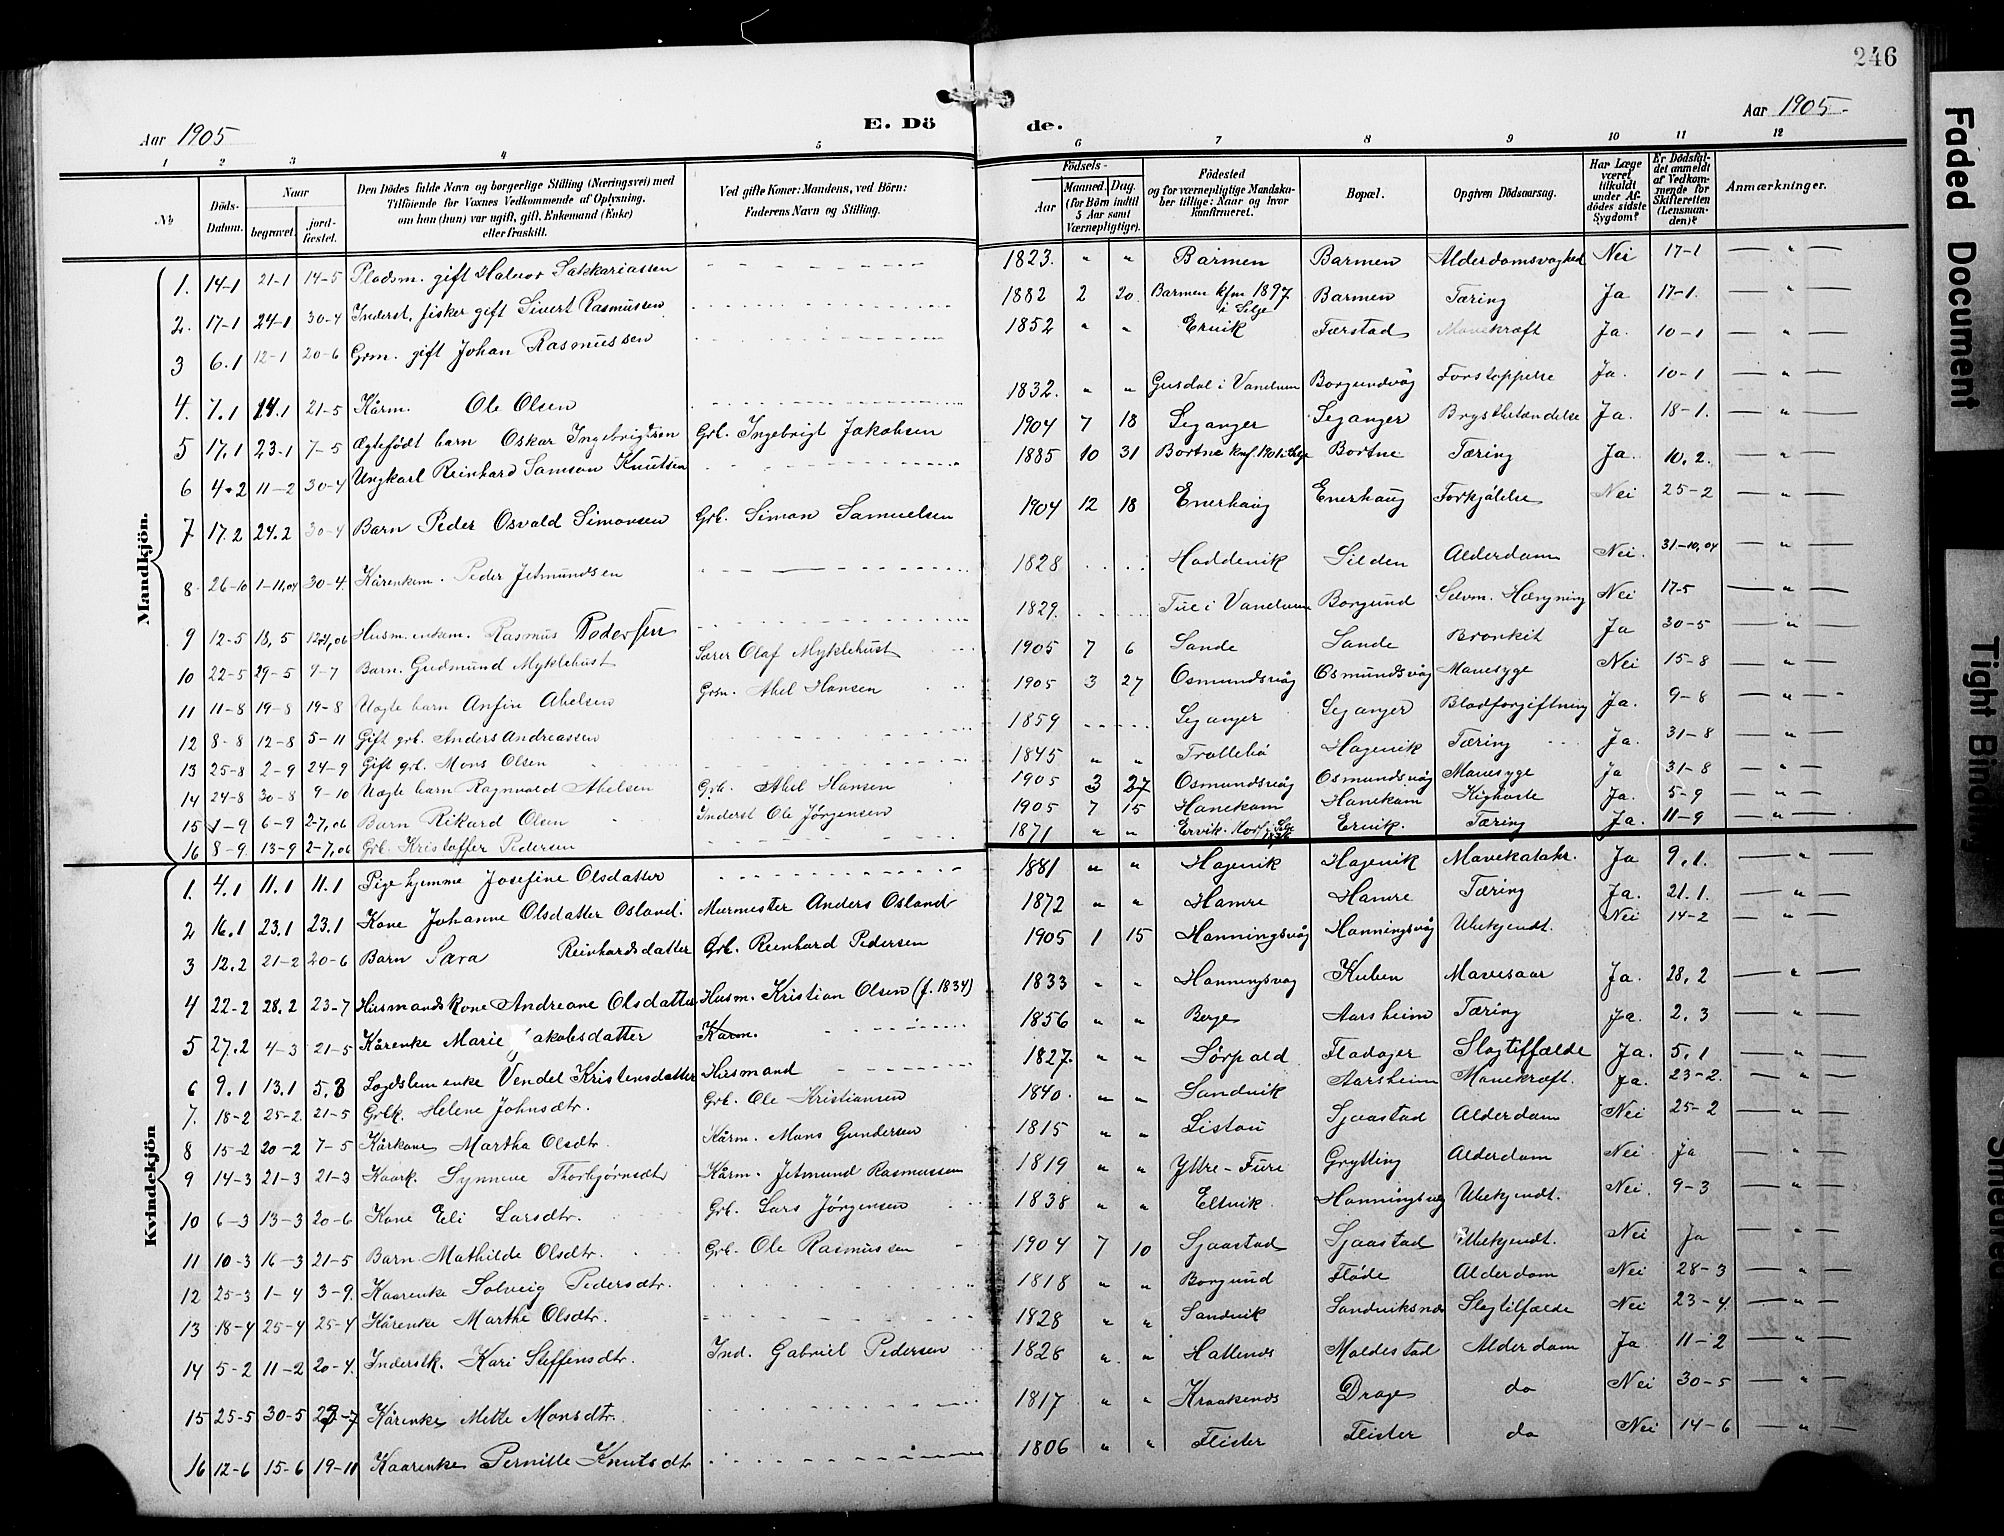 246
Aar 1905
E. Dö
de.
Aar 1905
1 2 3 4 5 6 7 8 9 10 11 12
No
Döds-Datum.
Naar
begravet.
jord-fæstet.
Den Dödes fulde Navn og borgerlige Stilling (Næringsvei) med
Tilföiende for Voxnes Vedkommende af Oplysning,
om han (hun) var ugift, gift, Enkemand (Enke)
eller fraskilt.
Ved gifte Koner: Mandens, ved Börn:
Faderens Navn og Stilling.
Födsels-
Aar
Maaned. Dag.
(for Börn indtil
5 Aar samt
Værnepligtige).
Födested
og for værnepligtige Mandska-
ber tillige: Naar og hvor
konfirmeret.
Bopæl.
Opgiven Dödsaarsag.
Har Læge
været
tilkaldt
under Af-
dödes sidste
Sygdom?
Er Dödsfal-
det anmeldt
af Vedkom-
mende for
Skifteretten
(Lensman-
den)?
Anmærkninger.
Mandkjön.
1. 14-1 21-1 14-5 Pladsm. gift Halvor Sakkariassen 1823. " " Barmen Barmen Alderdomsvaghed Nei 17-1 — " —
2. 17-1 24-1 30-4 Inderst, fisker gift Sivert Rasmussen 1882 2 20 Barmen kfm 1897 i Selje Barmen Tæring Ja 17-1. — " —
3 6.1 12-1 20-6 Grm. gift Johan Rasmussen 1852 " " Ervik Færstad Mavekræft Ja. 10-1 — " —
4. 7.1 14.1 21-5 Kårm. Ole Olsen 1832. " " Gusdal i Vanelven Borgundvåg Forstoppelse Ja. 10-1 — " —
5 17.1 23-1 7-5 Ægtefödt barn Oskar Ingebrigtsen Grb. Ingebrigt Jakobsen 1904 7 18 Seganger Seganger Brystbetændelse Ja. 18-1. — " —
6 4-2 11-2 30-4 Ungkarl Reinhard Samson Knutsen 1885 10 31 Bortne Bortne Tæring Ja. 10.2. — " —
7 17.2 24.2 30-4 Barn Peder Osvald Simonsen Grb. Simon Samuelsen 1904 12 18 Enerhaug Enerhaug Forkjölelse Nei 25-2 — " —
8. 26-10 1-11,04 30-4. Kårenkem. Peder Jetmundsen 1828 Hoddevik Silden Alderdom Nei. 31-10,04 — " —
9 12-5 18,5 Husm. enkem. Rasmus Pedersen 1829. Tue i Vanelven Borgund Selvm. Hængning Nei 17-5 — " —
10 22-5 29-5 9-7 Barn. Gudmund Myklebust Lærer Olaf Myklebust 1905 7 6 Sande Sande Bronkit Ja 30-5 — " —
11 11-8 19-8 19-8 Uægte barn Anfin Abelsen Grm. Abel Hansen 1905 3 27 Osmundsvåg Osmundsvåg Mavesyge Nei 15-8 — " —
12 8-8 12-8 5-11 Gift grb. Anders Andreassen 1859 Seganger Seganger Blodforgiftning Ja. 9-8 — " —
13 25-8 2-9 24-9 Gift grb. Mons Olsen 1845 " " Trollebö Hagevik Tæring Ja. 31-8 — " —
14 24-8 30-8 9-10 Uægte barn Ragnvald Abelsen Grb. Abel Hansen 1905 3 27 Osmundsvåg Osmundsvåg Mavesyge Ja 31-8 — " —
15 1-9 6-9 2-7,06 Barn Rikard Olsen Inderst Ole Jørgensen 1905 7 15 Hanekam Hanekam Kighoste Ja. 5-9 — " —
16 8-9. 13-9 2-7,06 Grb. Kristoffer Pedersen 1871 " " Ervik Ervik. Tæring Ja. 11-9 — " —
Kvindekjön
1. 4.1 11.1 11.1 Pige hjemme Josefine Olsdatter 1881 " " Hagevik Hagevik Mavekatahr. Ja 9.1. — " —
2 16.1 23.1 23.1 Kone Johanne Olsdatter Osland. Murmester Anders Osland 1872 " " Hamre Hamre Tæring Ja. 21.1. — " —
3 12.2 21-2 20-6 Barn Sara Reinhardsdatter Grb. Reinhard Pedersen 1905 1 15 Honningsvåg Honningsvåg Ubekjendt. Nei 14-2 — " —
4 22-2 28.2 23-7 Husmandskone Andreane Olsdatter Husm. Kristian Olsen (f. 1834) 1833 " " Honningsvag Kuben Mavesaar Ja. 28.2 — " —
5 27.2 4-3 21-5 Kårenke Marie Jakobsdatter Kårm. 1856 " " Berge Aarsheim Tæring Ja. 2.3 — " —
6 9.1 13.1 5.3 Lægdslem enke Vendel Kristensdatter Husmand 1827. " " Sørpold Fladager Slagtilfælde Ja. 5.1 — " —
7. 18-2 25-2. 21-5 Grbk. Helene Johnsdtr. Grb. Ole Kristiansen 1840. " " Sandvik Aarsheim Mavekræft. Ja. 23-2. — " —
8 15-2 20-2 7-5 Kårkone Martha Olsdtr. Kårm. Mons Gundersen 1815 " " Listou Sjaastad Alderdom Nei 25-2 — " —
9 14-3 21-3 21-3 Kaark. Synneve Thorbjørnsdtr Kårm. Jetmund Rasmussen 1819 " " Yttre-Fure Grytting Alderdom Nei. Ja — " —
10 6-3 13-3 20-6 Kone Eli Larsdtr. Grb. Lars Jørgensen 1838 " " Eltvik Honningsvåg Ubekjendt. Nei. 9-3 — " —
11 10-3 16-3 21-5 Barn Mathilde Olsdtr. Grb. Ole Rasmussen 1904 7 10 Sjaastad Sjaastad Ubekjendt. Nei Ja — " —
12 25-3 1-4 3-9. Kaarenke Solveig Pedersdtr. 1818 " " Borgund Flöde Alderdom Nei 28-3 — " —
13 18-4 25-4 25-4 Kårenke Marthe Olsdtr. 1828 " " Sandvik Sandviksnes Slagtilfælde Nei 23-4 — " —
14 5-2 11-2 20-4. Inderstk. Kari Steffensdtr. Ind. Gabriel Pedersen 1828 " " Hallends Maldestad Alderdom Ja 11-2 — " —
15 25-5 30-5 Kårenke Mette Monsdtr. 1817 " " Kraakenes Drage do Nei 30-5 — " —
16 12-6 15-6 19-11 Kaarenke Pernille Knutsdtr 1806 " " Flister Flister do Nei 14-6 — " —
Faded Document
Tight Binding
Smeared